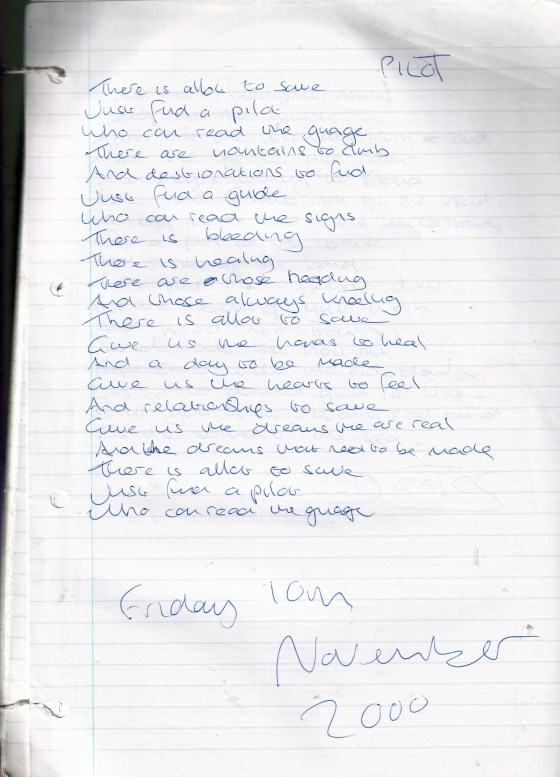 PILOT
There is allot to save
Just find a pilot
Who can read the guage
There are mountains to climb
And destionations to find
Just find a guide
Who can read the signs
There is bleeding
There is healing
There are those heading
And those always kneeling
There is allot to save
Give us the hands to heal
And a day to be made
Give us the hearts to feel
And relationships to save
Give us the dreams the are real
And the dreams that need to be made
There is allot to save
Just find a pilot
Who can read the guage
Friday 10th
November
2000